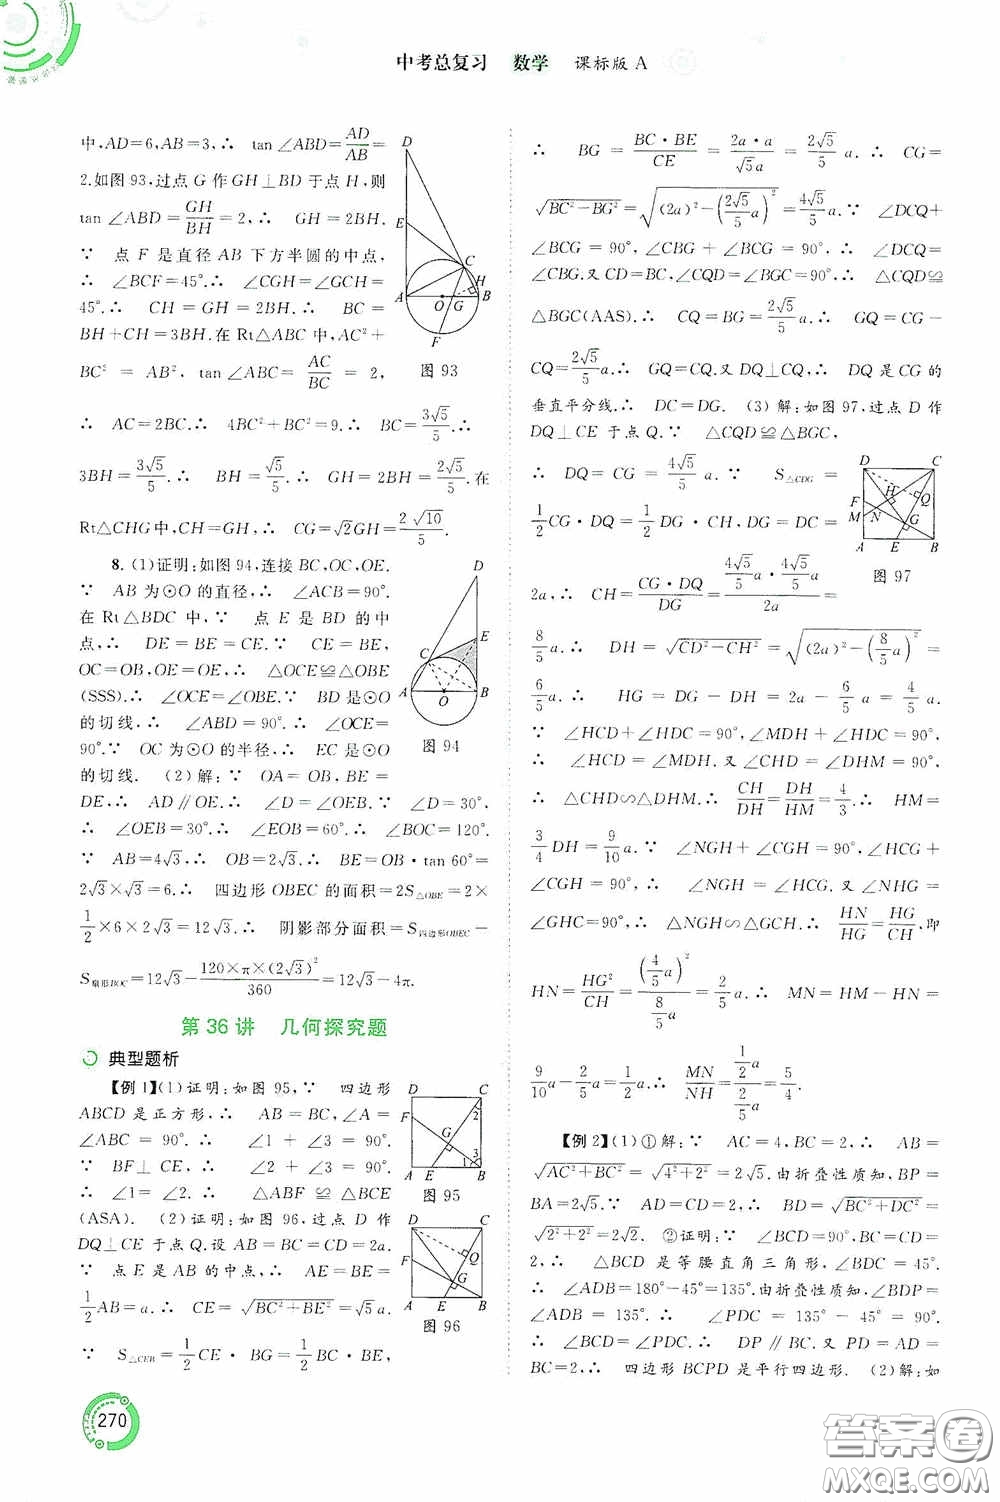 中考总复习 数学 课标版 A
中,AD=6,AB=3,∴ tan∠ABD=AD/AB=
2.如图 93,过点 G 作 GH⊥BD 于点 H,则
tan∠ABD=GH/BH=2,∴ GH=2BH.
∵ 点 F 是直径 AB 下方半圆的中点,
∴ ∠BCF=45°.∴ ∠CGH=∠GCH=
45°.∴ CH=GH=2BH.∴ BC=
BH+CH=3BH.在 Rt△ABC 中,AC²+
BC²=AB²,tan∠ABC=AC/BC=2,
∴ AC=2BC.∴ 4BC²+BC²=9.∴ BC=3√5/5.∴
3BH=3√5/5.∴ BH=√5/5.∴ GH=2BH=2√5/5.在
Rt△CHG 中,CH=GH,∴ CG=√2GH=2√10/5.
D
E
C
H
A
O
G
B
F
图 93
8. (1)证明:如图 94,连接 BC,OC,OE.
∵ AB 为⊙O 的直径,∴ ∠ACB=90°.
在 Rt△BDC 中,∵ 点 E 是 BD 的中
点,∴ DE=BE=CE.∵ CE=BE,
OC=OB,OE=OE,∴ △OCE≌△OBE
(SSS).∴ ∠OCE=∠OBE.∵ BD 是⊙O
的切线,∴ ∠ABD=90°.∴ ∠OCE=
90°.∵ OC 为⊙O 的半径,∴ EC 是⊙O
的切线. (2)解:∵ OA=OB,BE=
DE,∴ AD∥OE.∴ ∠D=∠OEB.∵ ∠D=30°,
∴ ∠OEB=30°.∴ ∠EOB=60°.∴ ∠BOC=120°.
∵ AB=4√3,∴ OB=2√3.∴ BE=OB·tan 60°=
2√3×√3=6.∴ 四边形 OBEC 的面积=2S△OBE=2×
1/2×6×2√3=12√3.∴ 阴影部分面积=S四边形OBEC−
S扇形BOC=12√3−120×π×(2√3)²/360=12√3−4π.
D
E
C
A
O
B
图 94
第 36 讲 几何探究题
典型题析
【例 1】(1)证明:如图 95,∵ 四边形
ABCD 是正方形,∴ AB=BC,∠A=
∠ABC=90°.∴ ∠1+∠3=90°.
∵ BF⊥CE,∴ ∠2+∠3=90°.
∴ ∠1=∠2.∴ △ABF≌△BCE
(ASA). (2)证明:如图 96,过点 D 作
DQ⊥CE 于点 Q.设 AB=BC=CD=2a.
∵ 点 E 是 AB 的中点,∴ AE=BE=
1/2AB=a.∴ CE=√(BC²+BE²)=√5a.
∵ S△CEB=1/2CE·BG=1/2BC·BE,
D C
2
F
G
3
1
A E B
图 95
D C
Q
F
G
A E B
图 96
∴ BG=BC·BE/CE=2a·a/√5a=2√5/5a.∴ CG=
√(BC²−BG²)=√((2a)²−(2√5/5a)²)=4√5/5a.∵ ∠DCQ+
∠BCG=90°,∠CBG+∠BCG=90°,∴ ∠DCQ=
∠CBG.又 CD=BC,∠CQD=∠BGC=90°,∴ △CQD≌
△BGC(AAS).∴ CQ=BG=2√5/5a.∴ GQ=CG−
CQ=2√5/5a.∴ GQ=CQ.又 DQ⊥CQ,∴ DQ 是 CG 的
垂直平分线.∴ DC=DG. (3)解:如图 97,过点 D 作
DQ⊥CE 于点 Q.∵ △CQD≌△BGC,
∴ DQ=CG=4√5/5a.∵ S△CDG=
1/2CG·DQ=1/2DG·CH,DG=DC=
2a,∴ CH=CG·DQ/DG=(4√5/5a·4√5/5a)/2a=
8/5a.∴ DH=√(CD²−CH²)=√((2a)²−(8/5a)²)=
6/5a.∴ HG=DG−DH=2a−6/5a=4/5a.
∵ ∠HCD+∠HDC=90°,∠MDH+∠HDC=90°,
∴ ∠HCD=∠MDH.又∠CHD=∠DHM=90°,
∴ △CHD∽△DHM.∴ CH/DH=DH/HM=4/3.∴ HM=
3/4DH=9/10a.∵ ∠NGH+∠CGH=90°,∠HCG+
∠CGH=90°,∴ ∠NGH=∠HCG.又∠NHG=
∠GHC=90°,∴ △NGH∽△GCH.∴ HN/HG=HG/CH,即
HN=HG²/CH=(4/5a)²/(8/5a)=2/5a.∴ MN=HM−HN=
9/10a−2/5a=1/2a.∴ MN/NH=(1/2a)/(2/5a)=5/4.
D C
H
Q
F
M
N
G
A E B
图 97
【例 2】(1)①解:∵ AC=4,BC=2,∴ AB=
√(AC²+BC²)=√(4²+2²)=2√5.由折叠性质知,BP=
BA=2√5.∵ AD=CD=2,∴ BD=√(BC²+DC²)=
√(2²+2²)=2√2. ②证明:∵ ∠BCD=90°,BC=CD=
2,∴ △BCD 是等腰直角三角形,∴ ∠BDC=45°.
∴ ∠ADB=180°−45°=135°.由折叠性质知,∠BDP=
∠ADB=135°.∴ ∠PDC=135°−45°=90°.
∴ ∠BCD=∠PDC.∴ DP∥BC.又 PD=AD=
BC=2,∴ 四边形 BCPD 是平行四边形. (2)解:如
270
答案卷
MXQE.COM